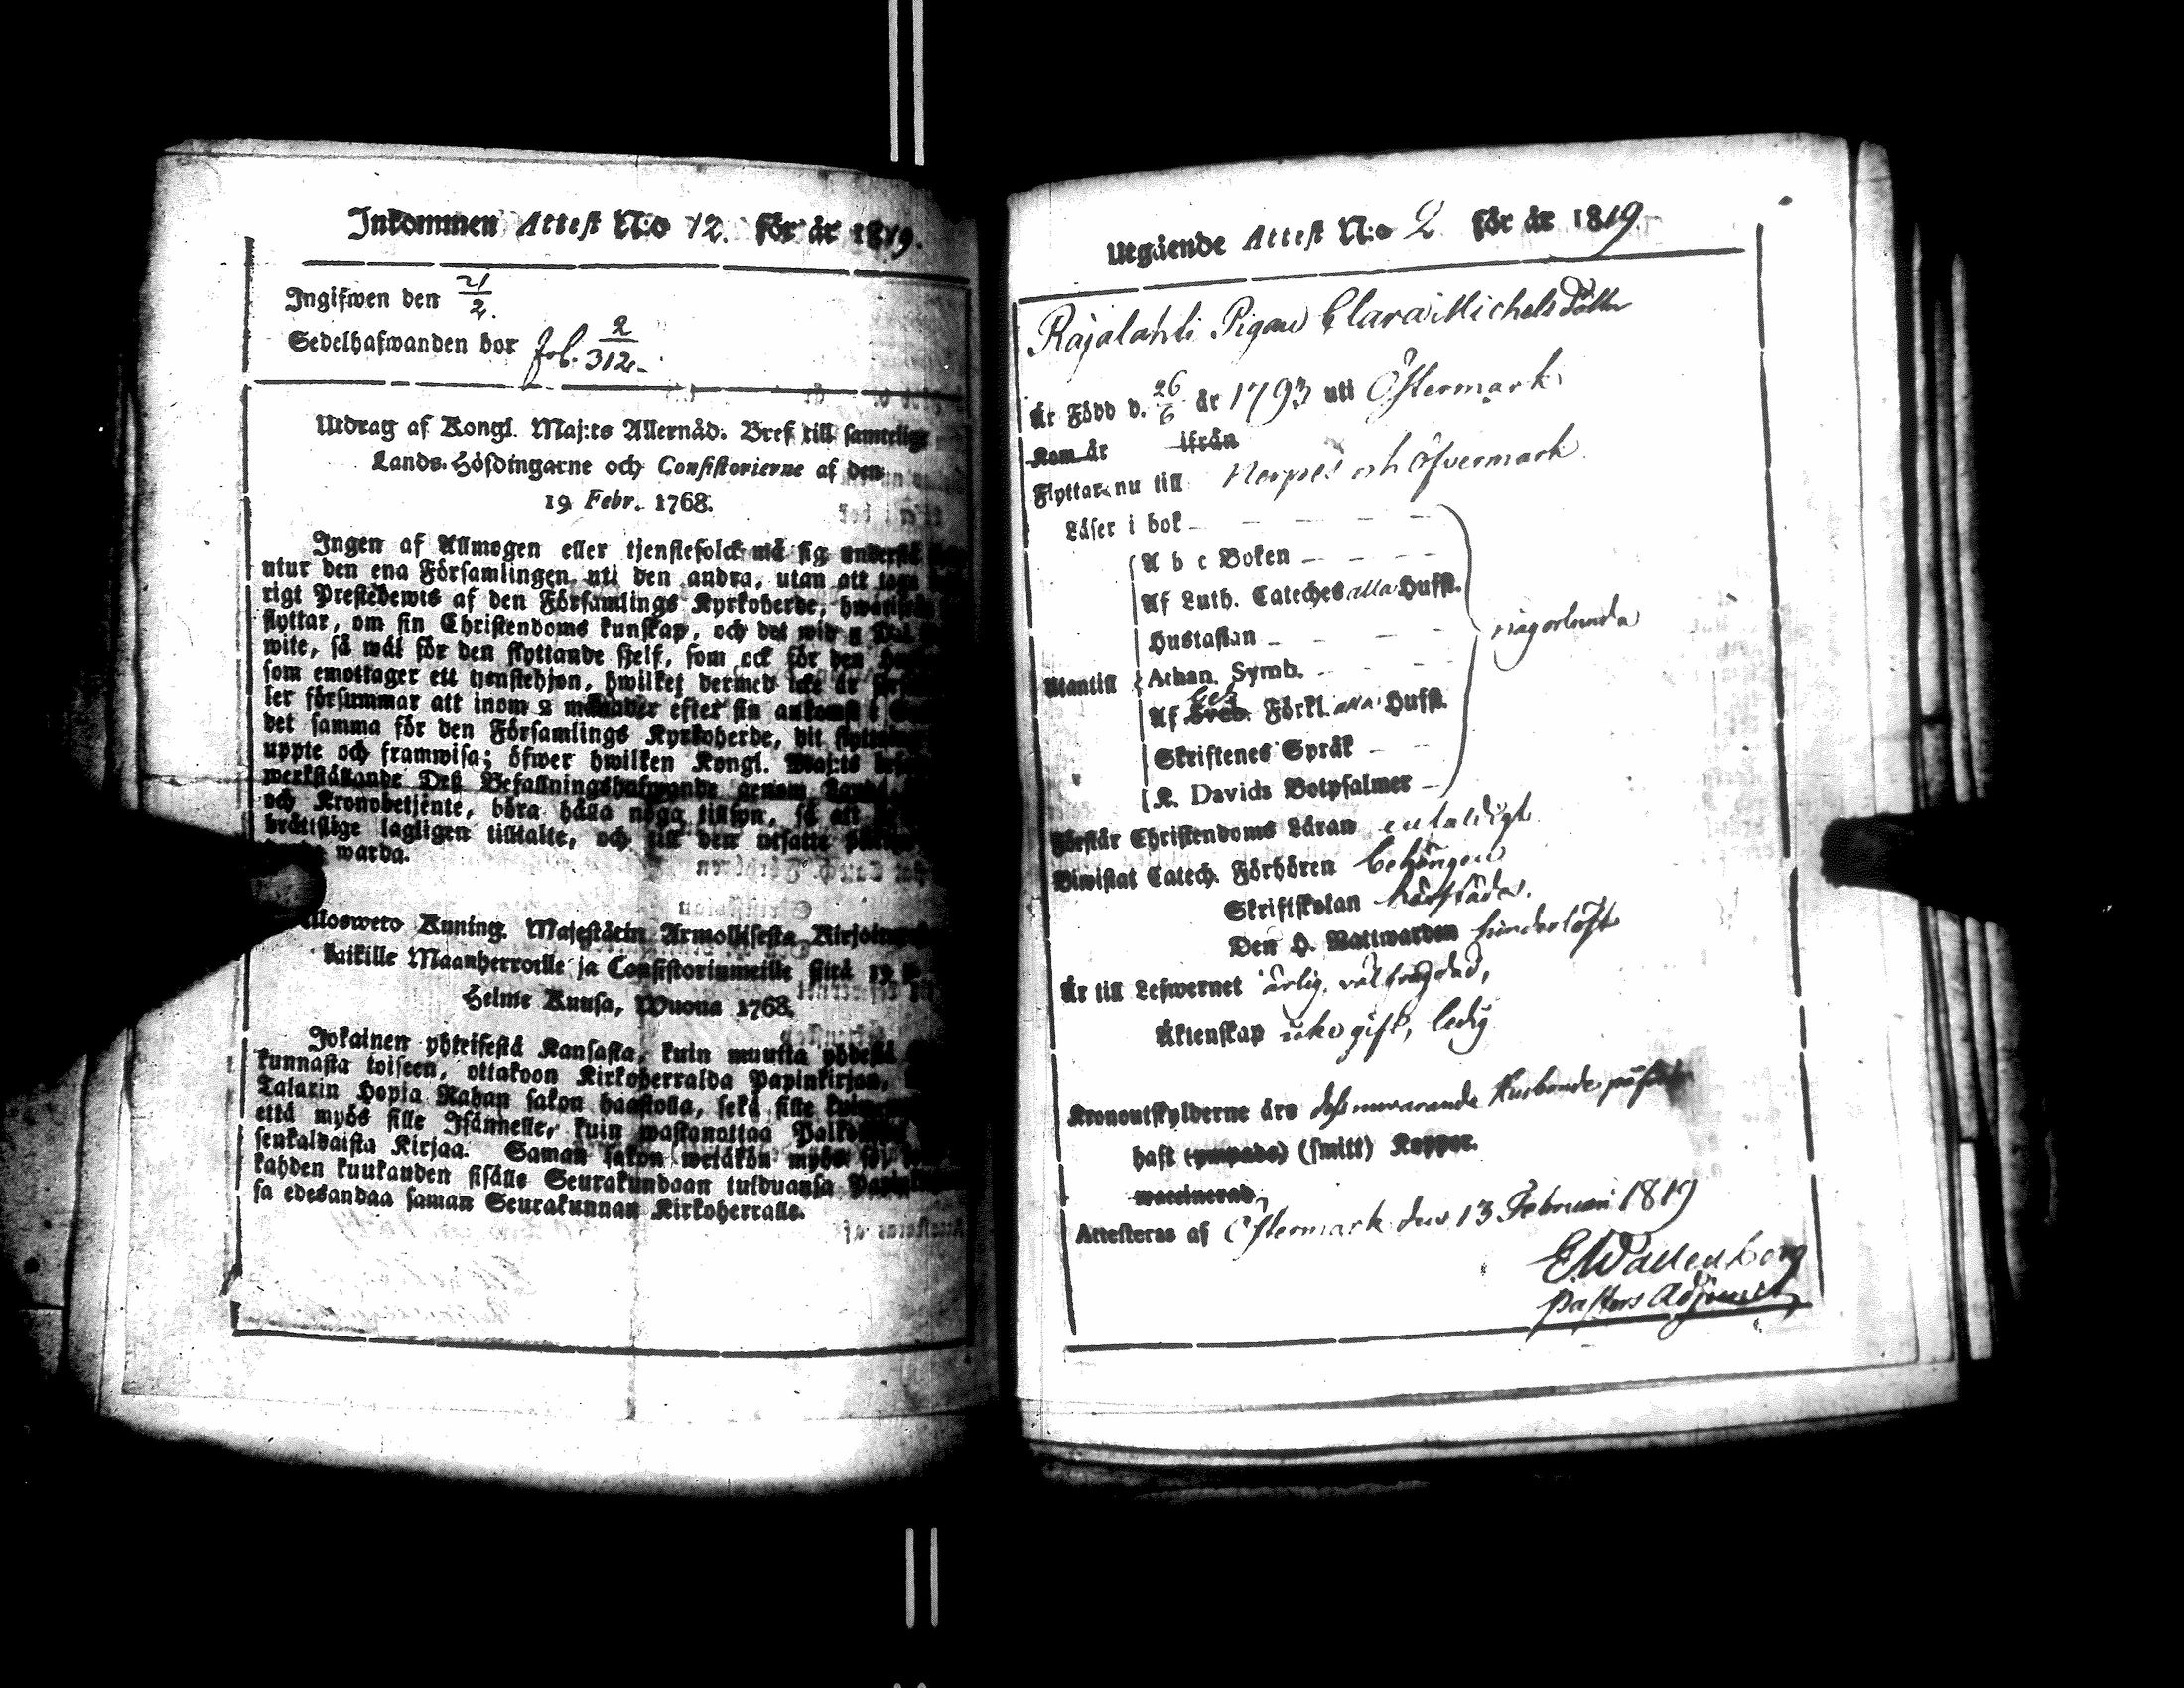 Inkommen Attest N:o 12. för år 1819.
Ingifwen den 21/2.
Sedelhafwanden bor fol. 2/312.
Utdrag af Kongl. Maj:ts Allernåd. Bref till samtelige
Lands-Höfdingarne och Consistorierne af den
19 Febr. 1768.
Ingen af Allmogen eller tjenstefolck må sig understå
utur den ena Församlingen uti den andra, utan att taga
rigt Prestebewis af den Församlings Kyrkoherde, hwarifrån
flyttar, om sin Christendoms kunskap, och det wid
wite, så wäl för den flyttande sjelf, som ock för den
som emottager ett tjenstehjon, hwilket dermed icke är
ler försummar att inom 2 månader efter sin ankomst
det samma för den Församlings Kyrkoherde, dit
uppte och framwisa; öfwer hwilken Kongl. Maj:ts
werkställande Deß Befallningshafwande genom
och Kronobetjente, böra hålla noga tillsyn, så att
brättslige lagligen tilltalte, och till den utsatte
warda.
Ulosweto Kuning. Majestätin Armollisesta Kirjoituksesta
kaikille Maanherroille ja Consistoriumeille siitä 19
Helme Kuusa, Wuona 1768.
Jokainen yhteisestä Kansasta, kuin muutta yhdestä
kunnasta toiseen, ottakoon Kirkoherralda Papinkirjan,
Talarin Hopia Rahan sakon haastolla, sekä sille
että myös sille Isännelle, kuin wastanottaa
senkaldaista Kirjaa. Saman sakon wetäkön myös
kahden kuukauden sisälle Seurakundaan tulduansa
sa edesandaa saman Seurakunnan Kirkoherralle.
Utgående Attest N:o 2 för år 1819.
Rajalahti Pigan Clara Michels Dotter
Är Född d. 26/6 år 1793 uti Östermark
Kom år ifrån
Flyttar nu till Nerpes och Öfvermark
Läser i bok
A b c Boken
Af Luth. Cateches alla Hufst.
Hustaflan
någorlunda
Utantill Athan. Symb.
Af Sveb. Förkl. alla Hufst.
Skriftenes Språk
K. Davids Botpsalmer
Förstår Christendoms Läran enfaldigt
Biwistat Catech. Förhören behörigen
Skriftskolan härstädes.
Den H. Nattwarden hinderlöst
Är till Lefwernet ärlig, välfrägdad,
Äktenskap icke gift, ledig
Kronoutskylderne äro dess nuvarande Husbonde påförda
haft (ympade) (smitt) Koppor.
waccinerad
Attesteras af Östermark den 13 Februari 1819
E. Wallenberg
Pastors Adjunct